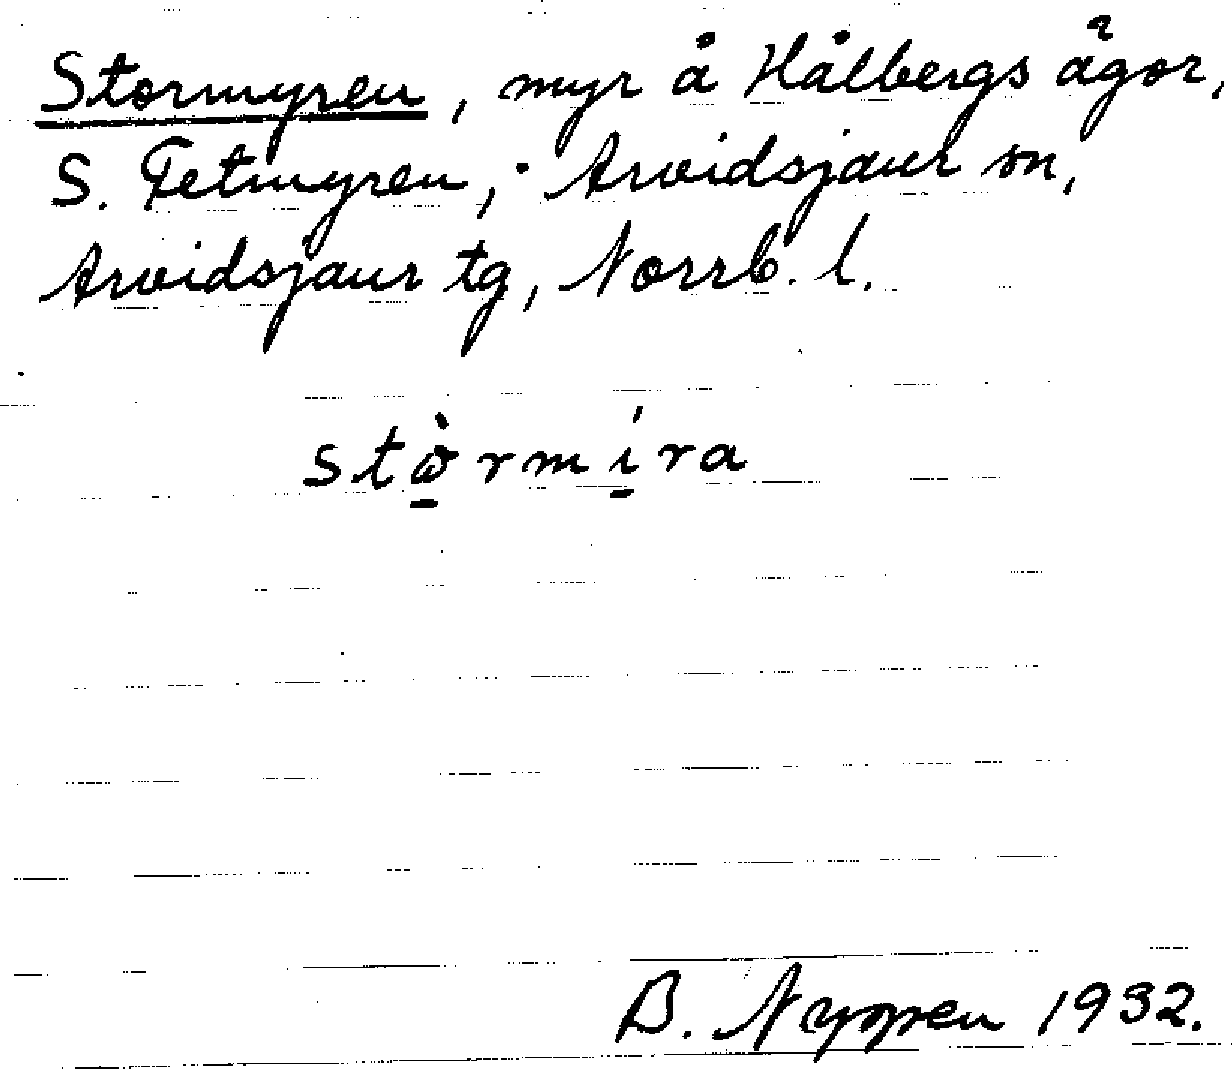 Stormyren, myr å Hålbergs ägor,
S. Fetmyren, Arvidsjaur sn,
Arvidsjaur tg, Norrb. l.
stὼ̱rmí̱ra
B. 1932.